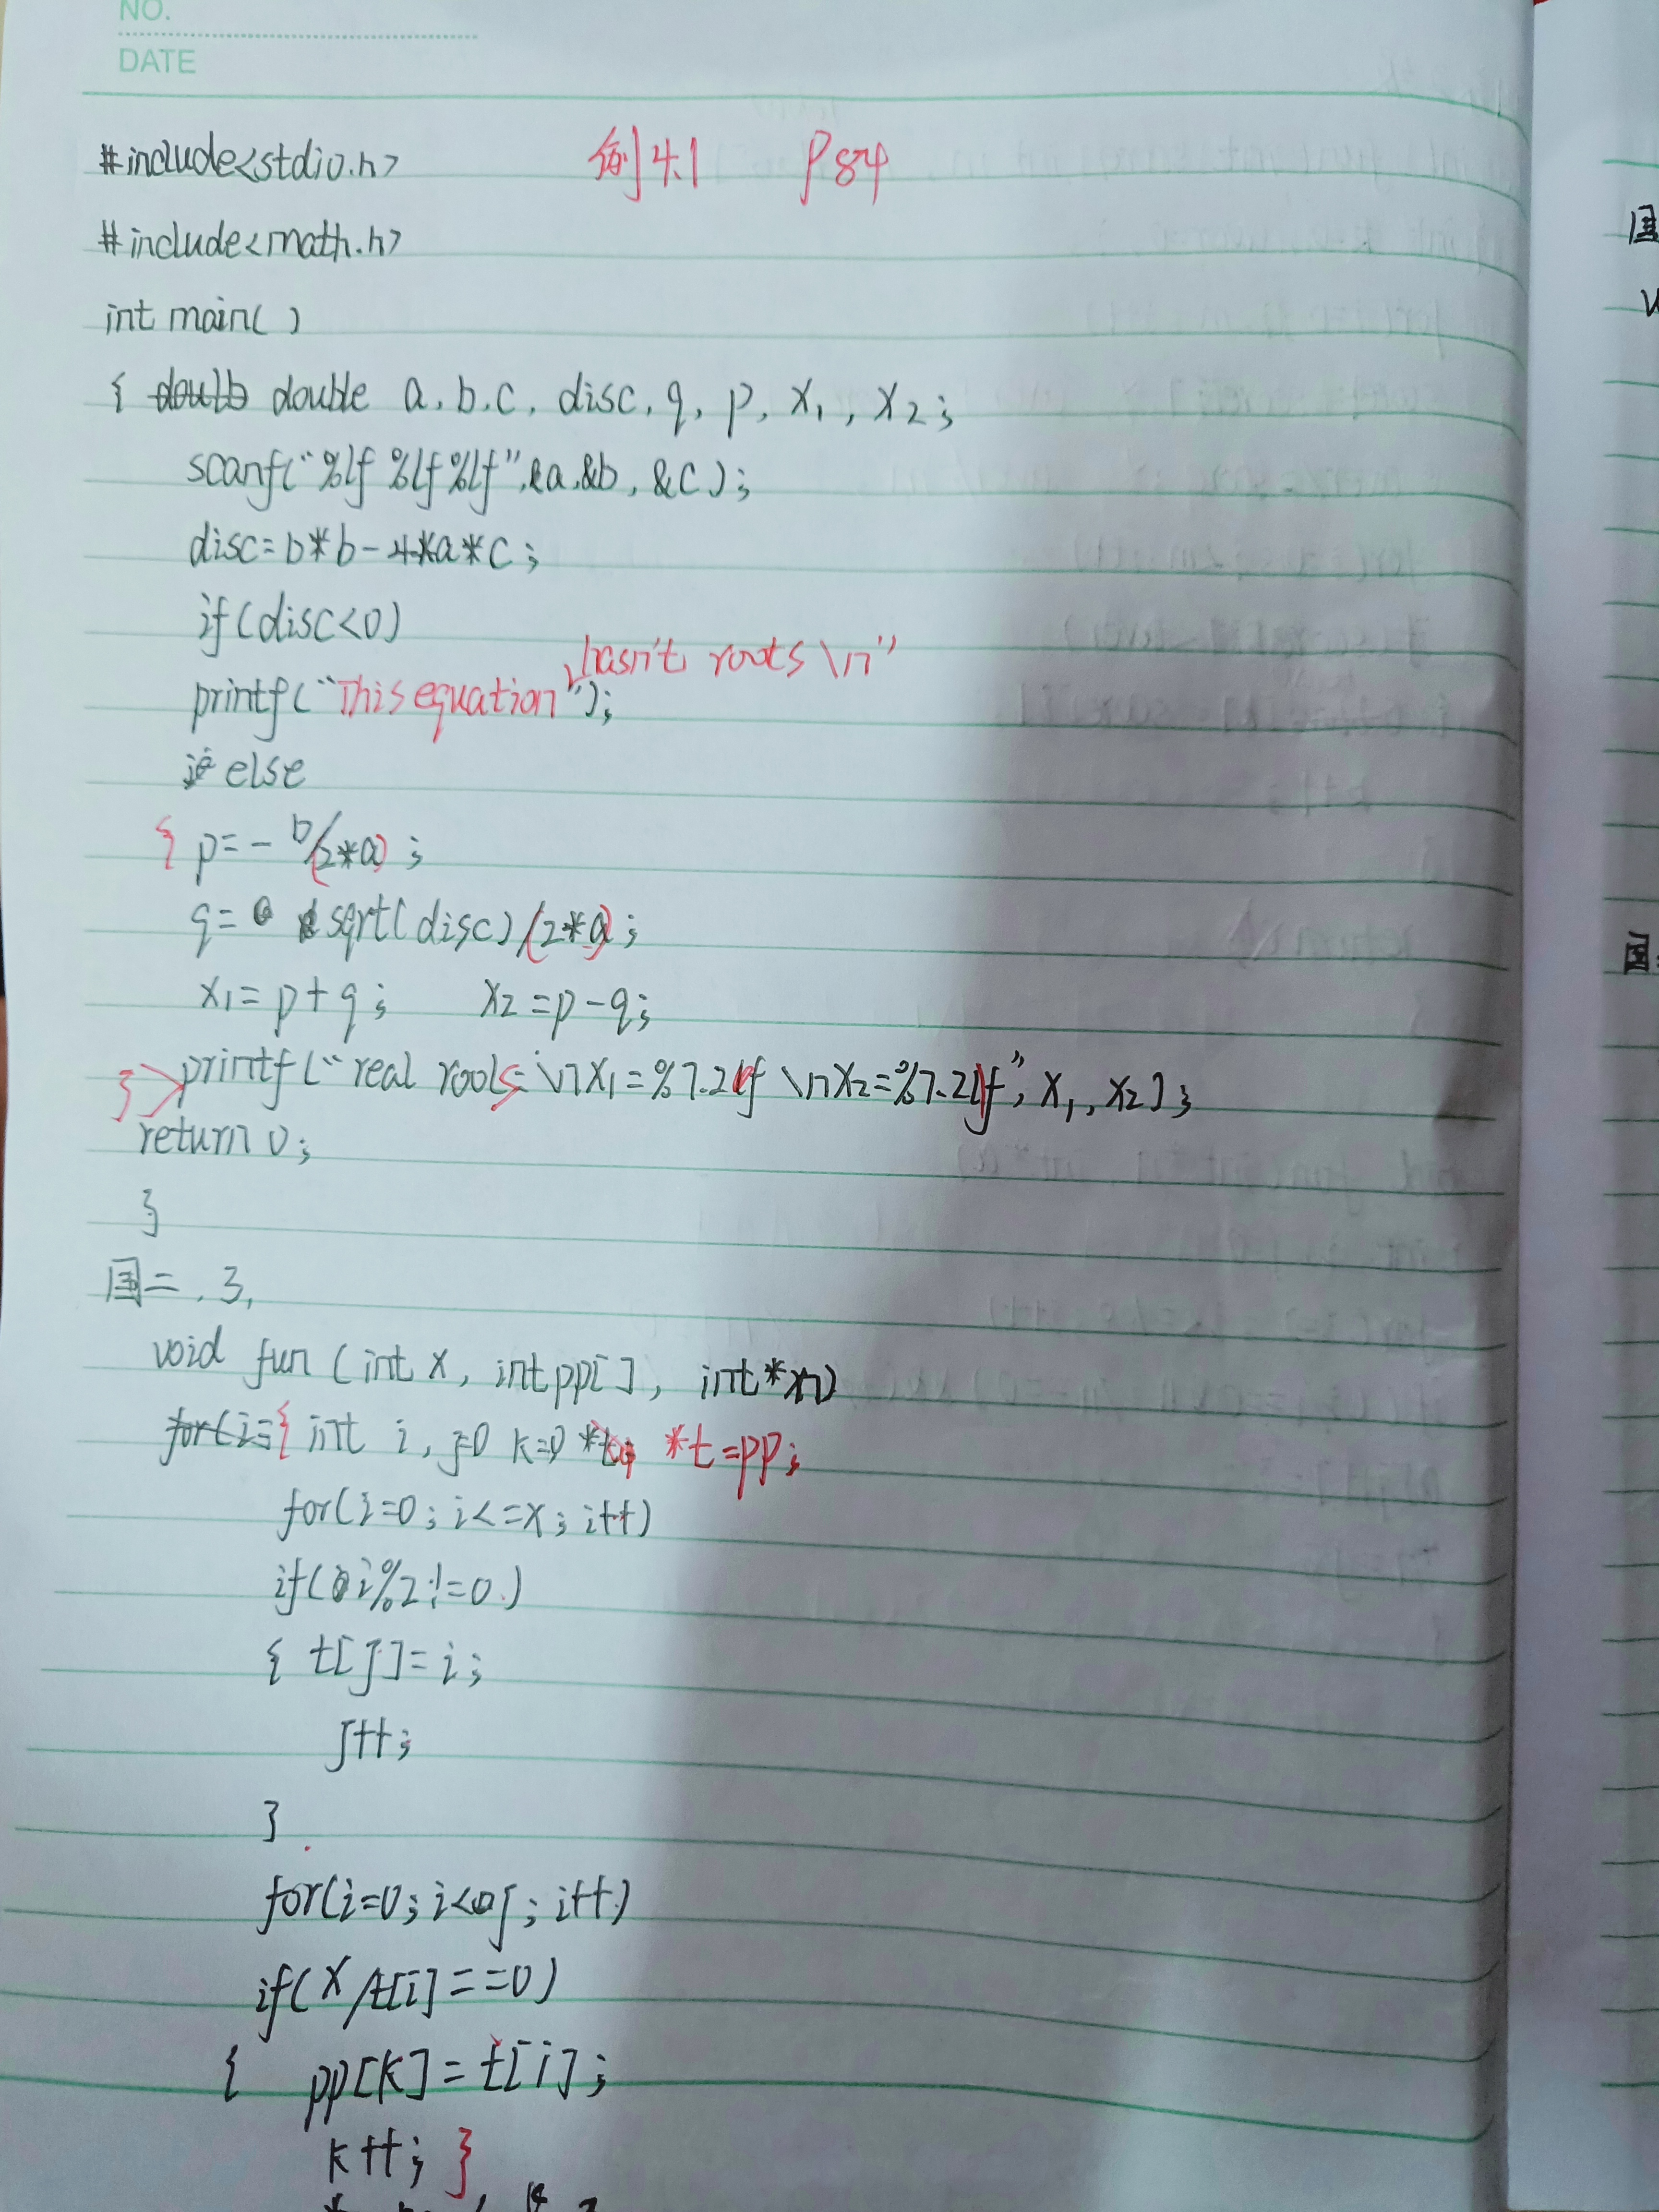 NO.
DATE
#include<stdio.h> 例4.1 P84
#include<math.h>
int main( )
{ double a,b,c, disc, q, p, x1, x2;
scanf("%lf %lf %lf",&a,&b, &c);
disc=b*b-4*a*c;
if(disc<0)
hasn't roots \n"
printf("This equation");
else
{ p=-b/(2*a);
q= sqrt(disc)/(2*a);
x1=p+q; x2=p-q;
} printf("real roots: \nx1=%7.2lf \nx2=%7.2lf", x1, x2);
return 0;
}
国二.3,
void fun (int x, int pp[], int*n)
for(i= { int i, j=0 k=0 *t=pp;
for(i=0; i<=x; i++)
if(i%2!=0)
{ t[j]=i;
j++;
}
for(i=0; i<j; i++)
if(x/t[i]==0)
{ pp[k]=t[i];
k++; }
国